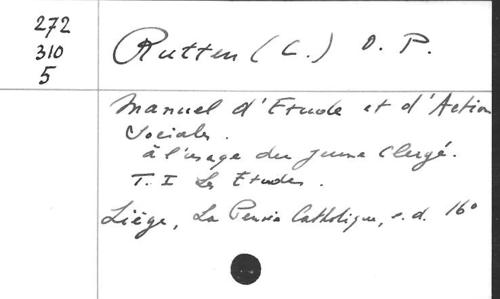 272
310
5
Rutten (C.) O. P.
Manuel d'Etude et d'Action
Sociales.
à l'usage du jeune Clergé.
T. I Les Etudes.
Liège, La Pensée Catholique, s. d. 16°